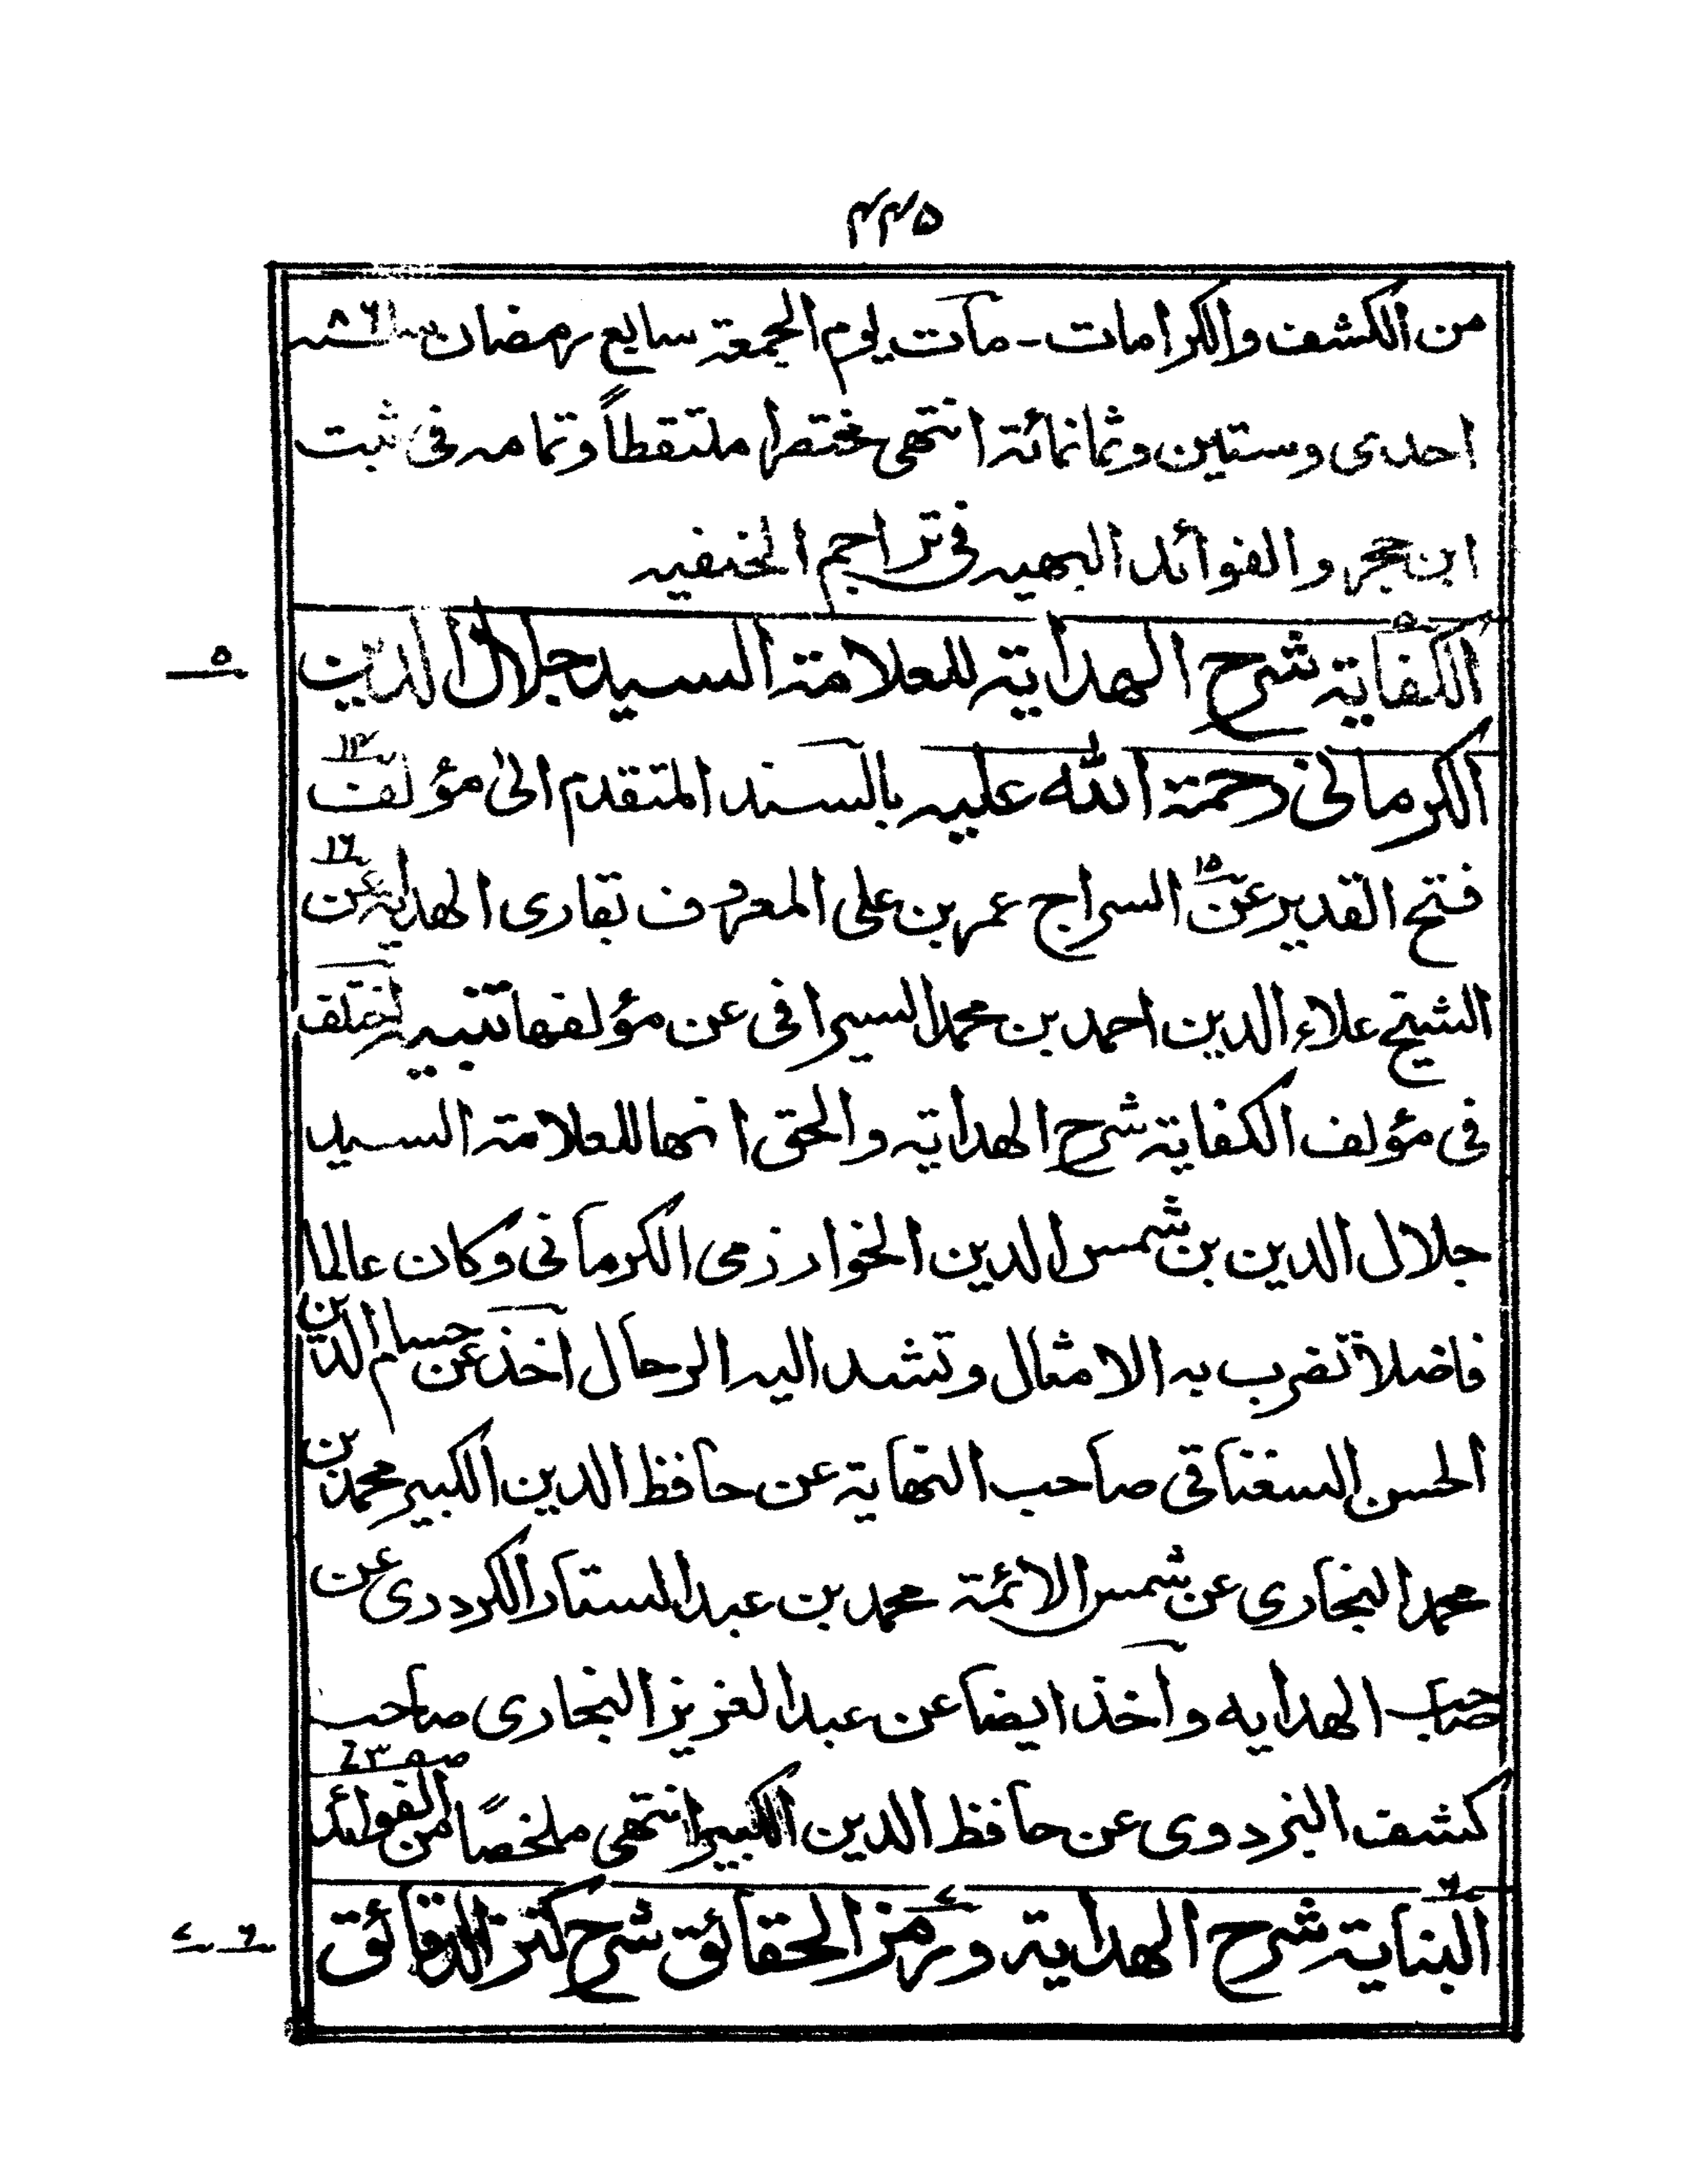 ۴۴۵
من الكشف والكرامات - مات يوم الجمعة سابع رمضان سنة ٨٦١
احدى وستين وثمانمائة انتهى مختصرا ملتقطاً وتمامه فى ثبت
ابن حجر و الفوائد البهيه فى تراجم الحنفيه
۵
الكفاية شرح الهداية للعلامة السيد جلال الدين
الكرمانى رحمة الله عليه بالسند المتقدم الىٰ مؤلف
فتح القدير عن ۱۵ السراج عمر بن على المعروف بقارى الهداية عن ۱۶
الشيخ علاء الدين احمد بن محمد السيرافى عن مؤلفها تنبيه اختلف
فى مؤلف الكفاية شرح الهداية والحق انها للعلامة السيد
جلال الدين بن شمس الدين الخوارزمى الكرمانى وكان عالما
فاضلا تضرب به الامثال وتشد اليه الرحال اخذ عن حسام الدين
الحسن السغناقى صاحب النهاية عن حافظ الدين الكبير محمد بن
محمد البخارى عن شمس الائمة محمد بن عبد الستار الكردرى عن
صاحب الهدايه وأخذ ايضا عن عبد العزيز البخارى صاحب
كشف البزدوى عن حافظ الدين الكبير انتهى ملخصًا من الفوائد
۶ - ۷
البناية شرح الهداية ورمز الحقائق شرح كنز الدقائق